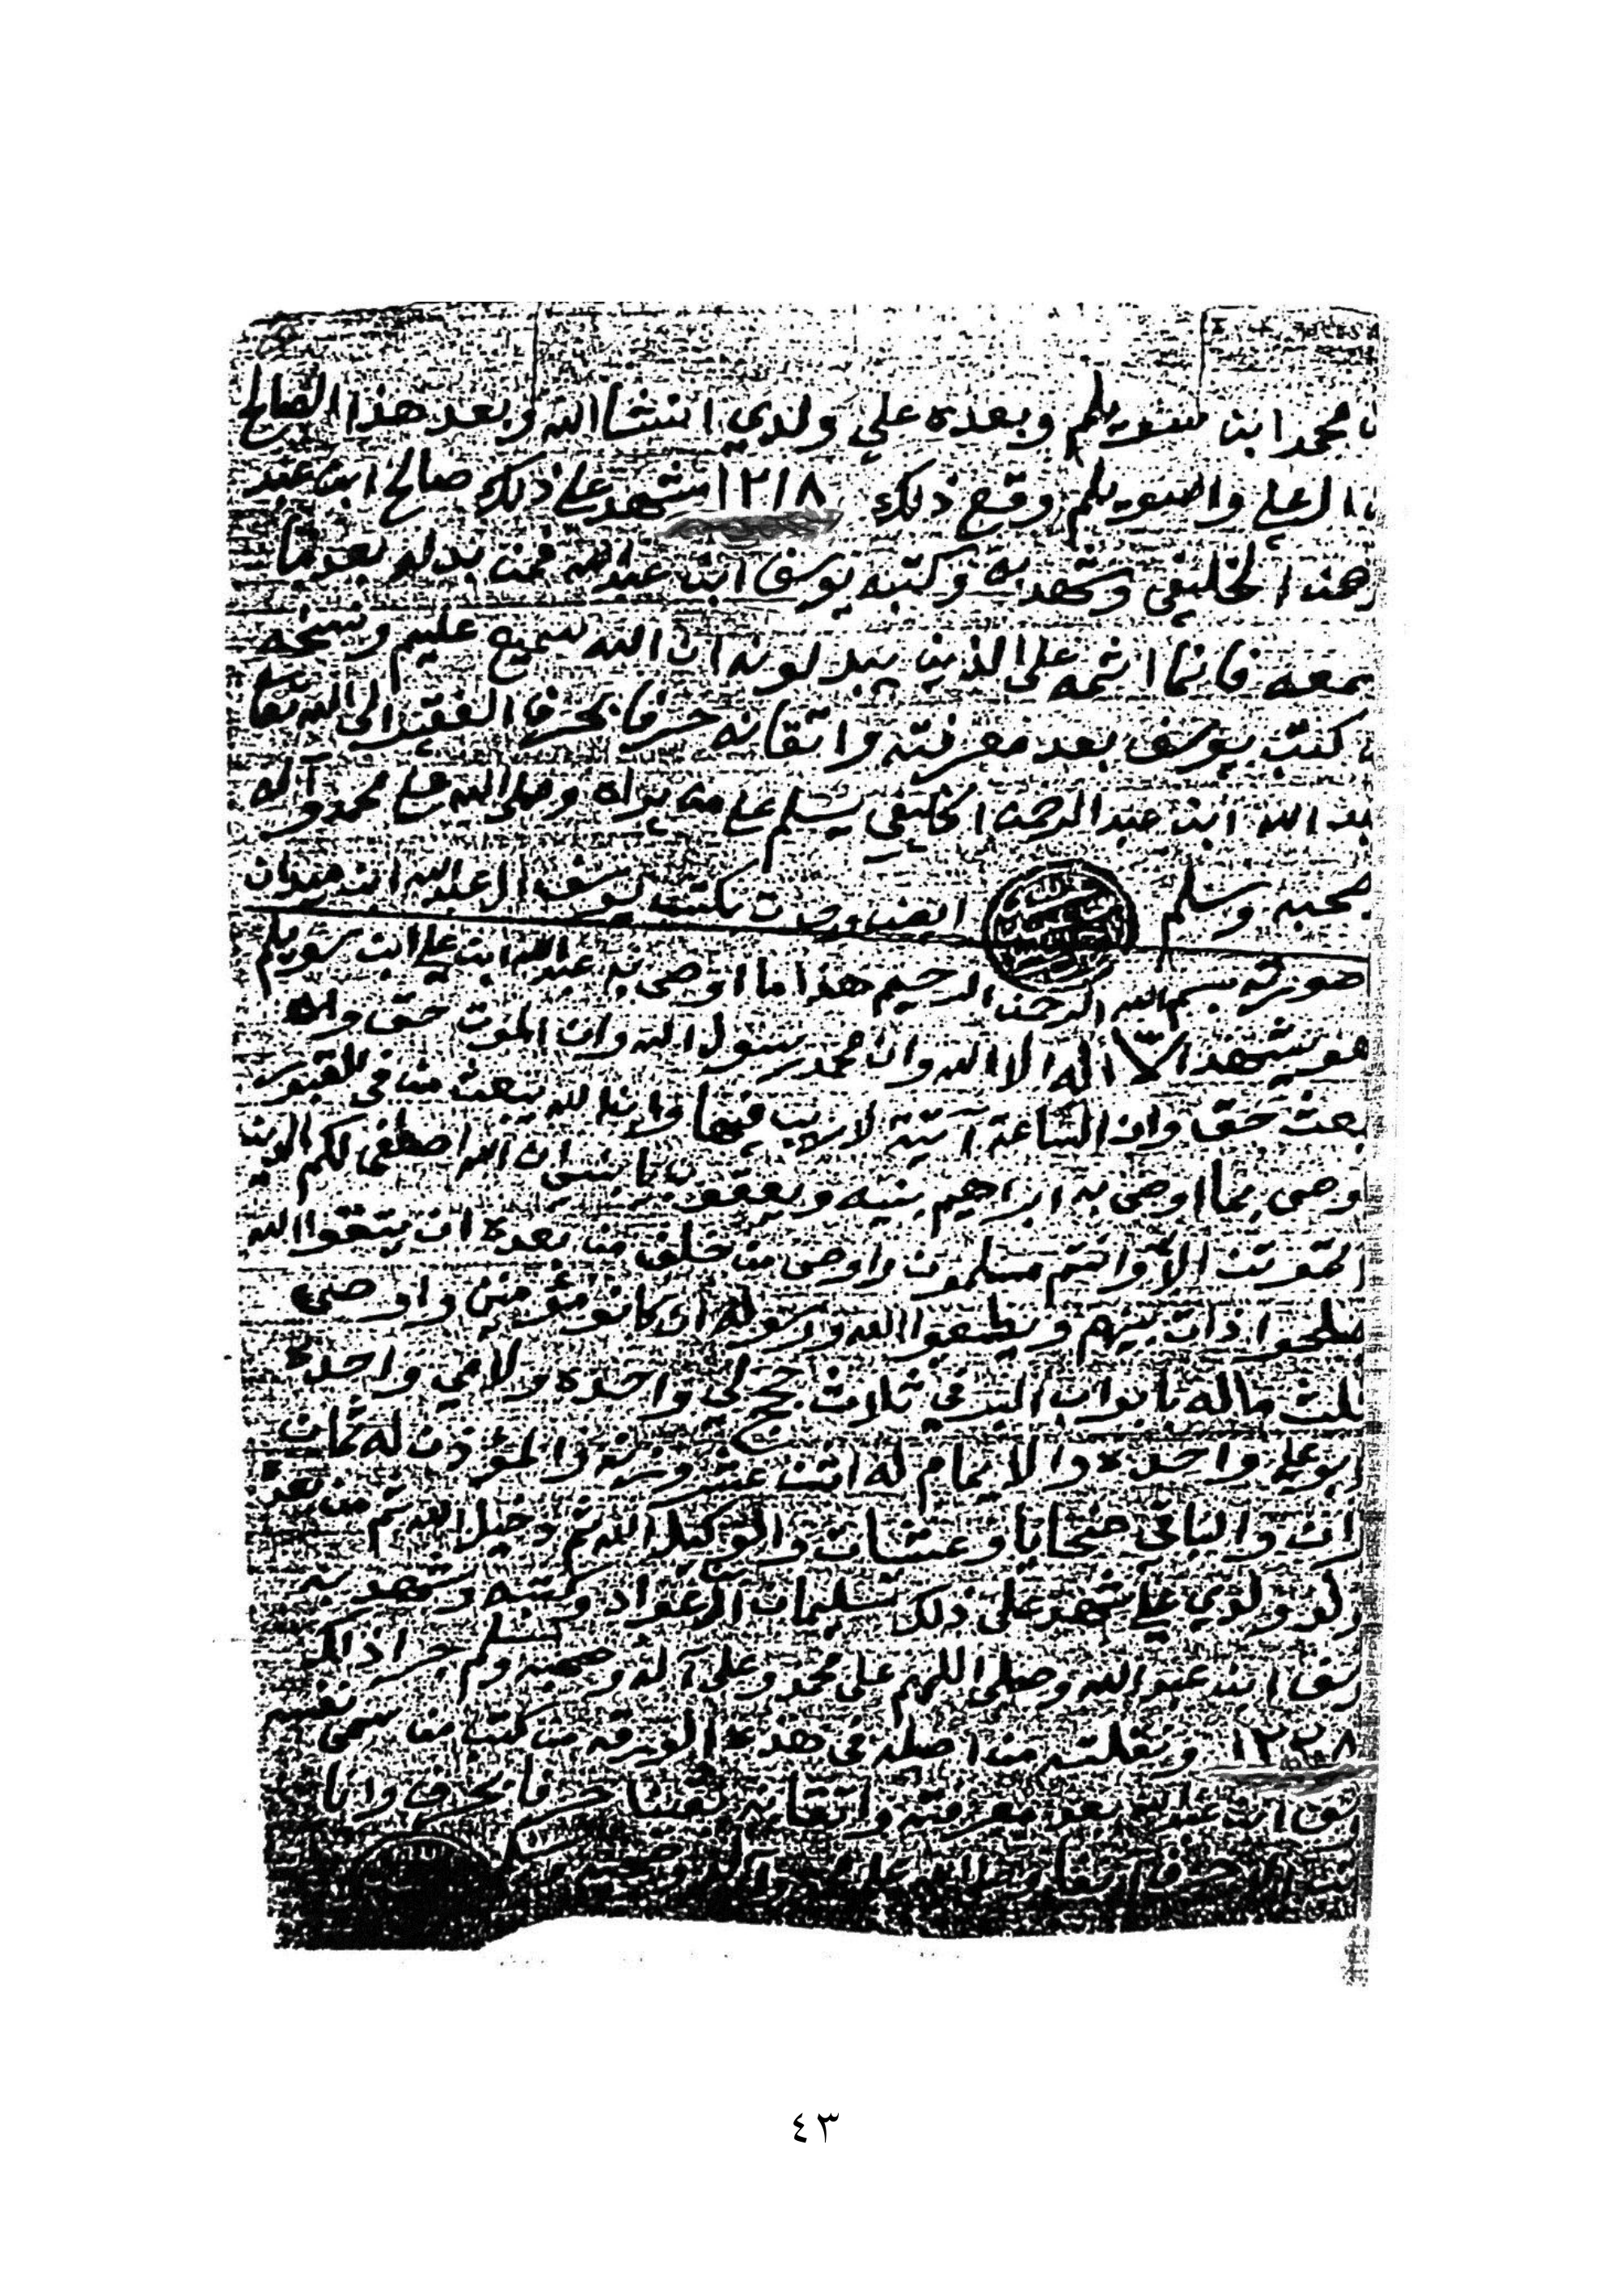 محمد ابن سويلم وبعده علي ولدي انشا الله وبعد هذا الصالح
ال علي وال سويلم وقع ذلك ١٢١٨ شهد على ذلك صالح ابن عبد
الخليفي وشهد به وكتبه يوسف ابن عبد الله فمن بدله بعد ما
سمعه فانما اثمه على الذين يبدلونه ان الله سميع عليم ونسخه
كتب يوسف بعد معرفته واتقانه حرفا بحرف الفقير الى الله تعا
عبد الله ابن عبد الرحمن الخليفي يسلم على من يراه وصلى الله على محمد واله
صحبه وسلم ايضا وجدت بكتب يوسف ال عبد الله
صورته بسم الله الرحمن الرحيم هذا ما اوصى به عبد الله ابن علي ابن سويلم
هو يشهد الا اله الا الله وان محمد رسول الله وان الموت حق وان
بعث حق وان الساعة آتية لا ريب فيها وان الله يبعث من في القبور
وصى بما اوصى به ابراهيم بنيه ويعقوب يا بني ان الله اصطفى لكم الدين
تموتن الا وانتم مسلمون واوصى من خلف من بعده ان يتقوا الله
صلحوا ذات بينهم ويطيعوا الله ورسوله ان كانو مؤمنين واوصى
ثلث ماله بابواب البر في ثلاث حجج لي واحده ولامي واحدة
ابو علي واحده والامام له اثنت عشر وزنه والمؤذن له ثمان
زان والباقي ضحايا وعشيات والوكيل الله ثم دخيل الله ثم من بعد
ولدي علي شهد على ذلك سليمان ال عواد وكتبه وشهد به
سف ابن عبد الله وصلى اللهم على محمد وعلى آله وصحبه وسلم جرا ذالك
١٢٢٨ ونقلته من اصله في هذه الورقه من كتب من سمى نفسه
سف ابن عبد الله بعد معرفته واتقانه يقينا حرفا بحرف وانا
٤٣